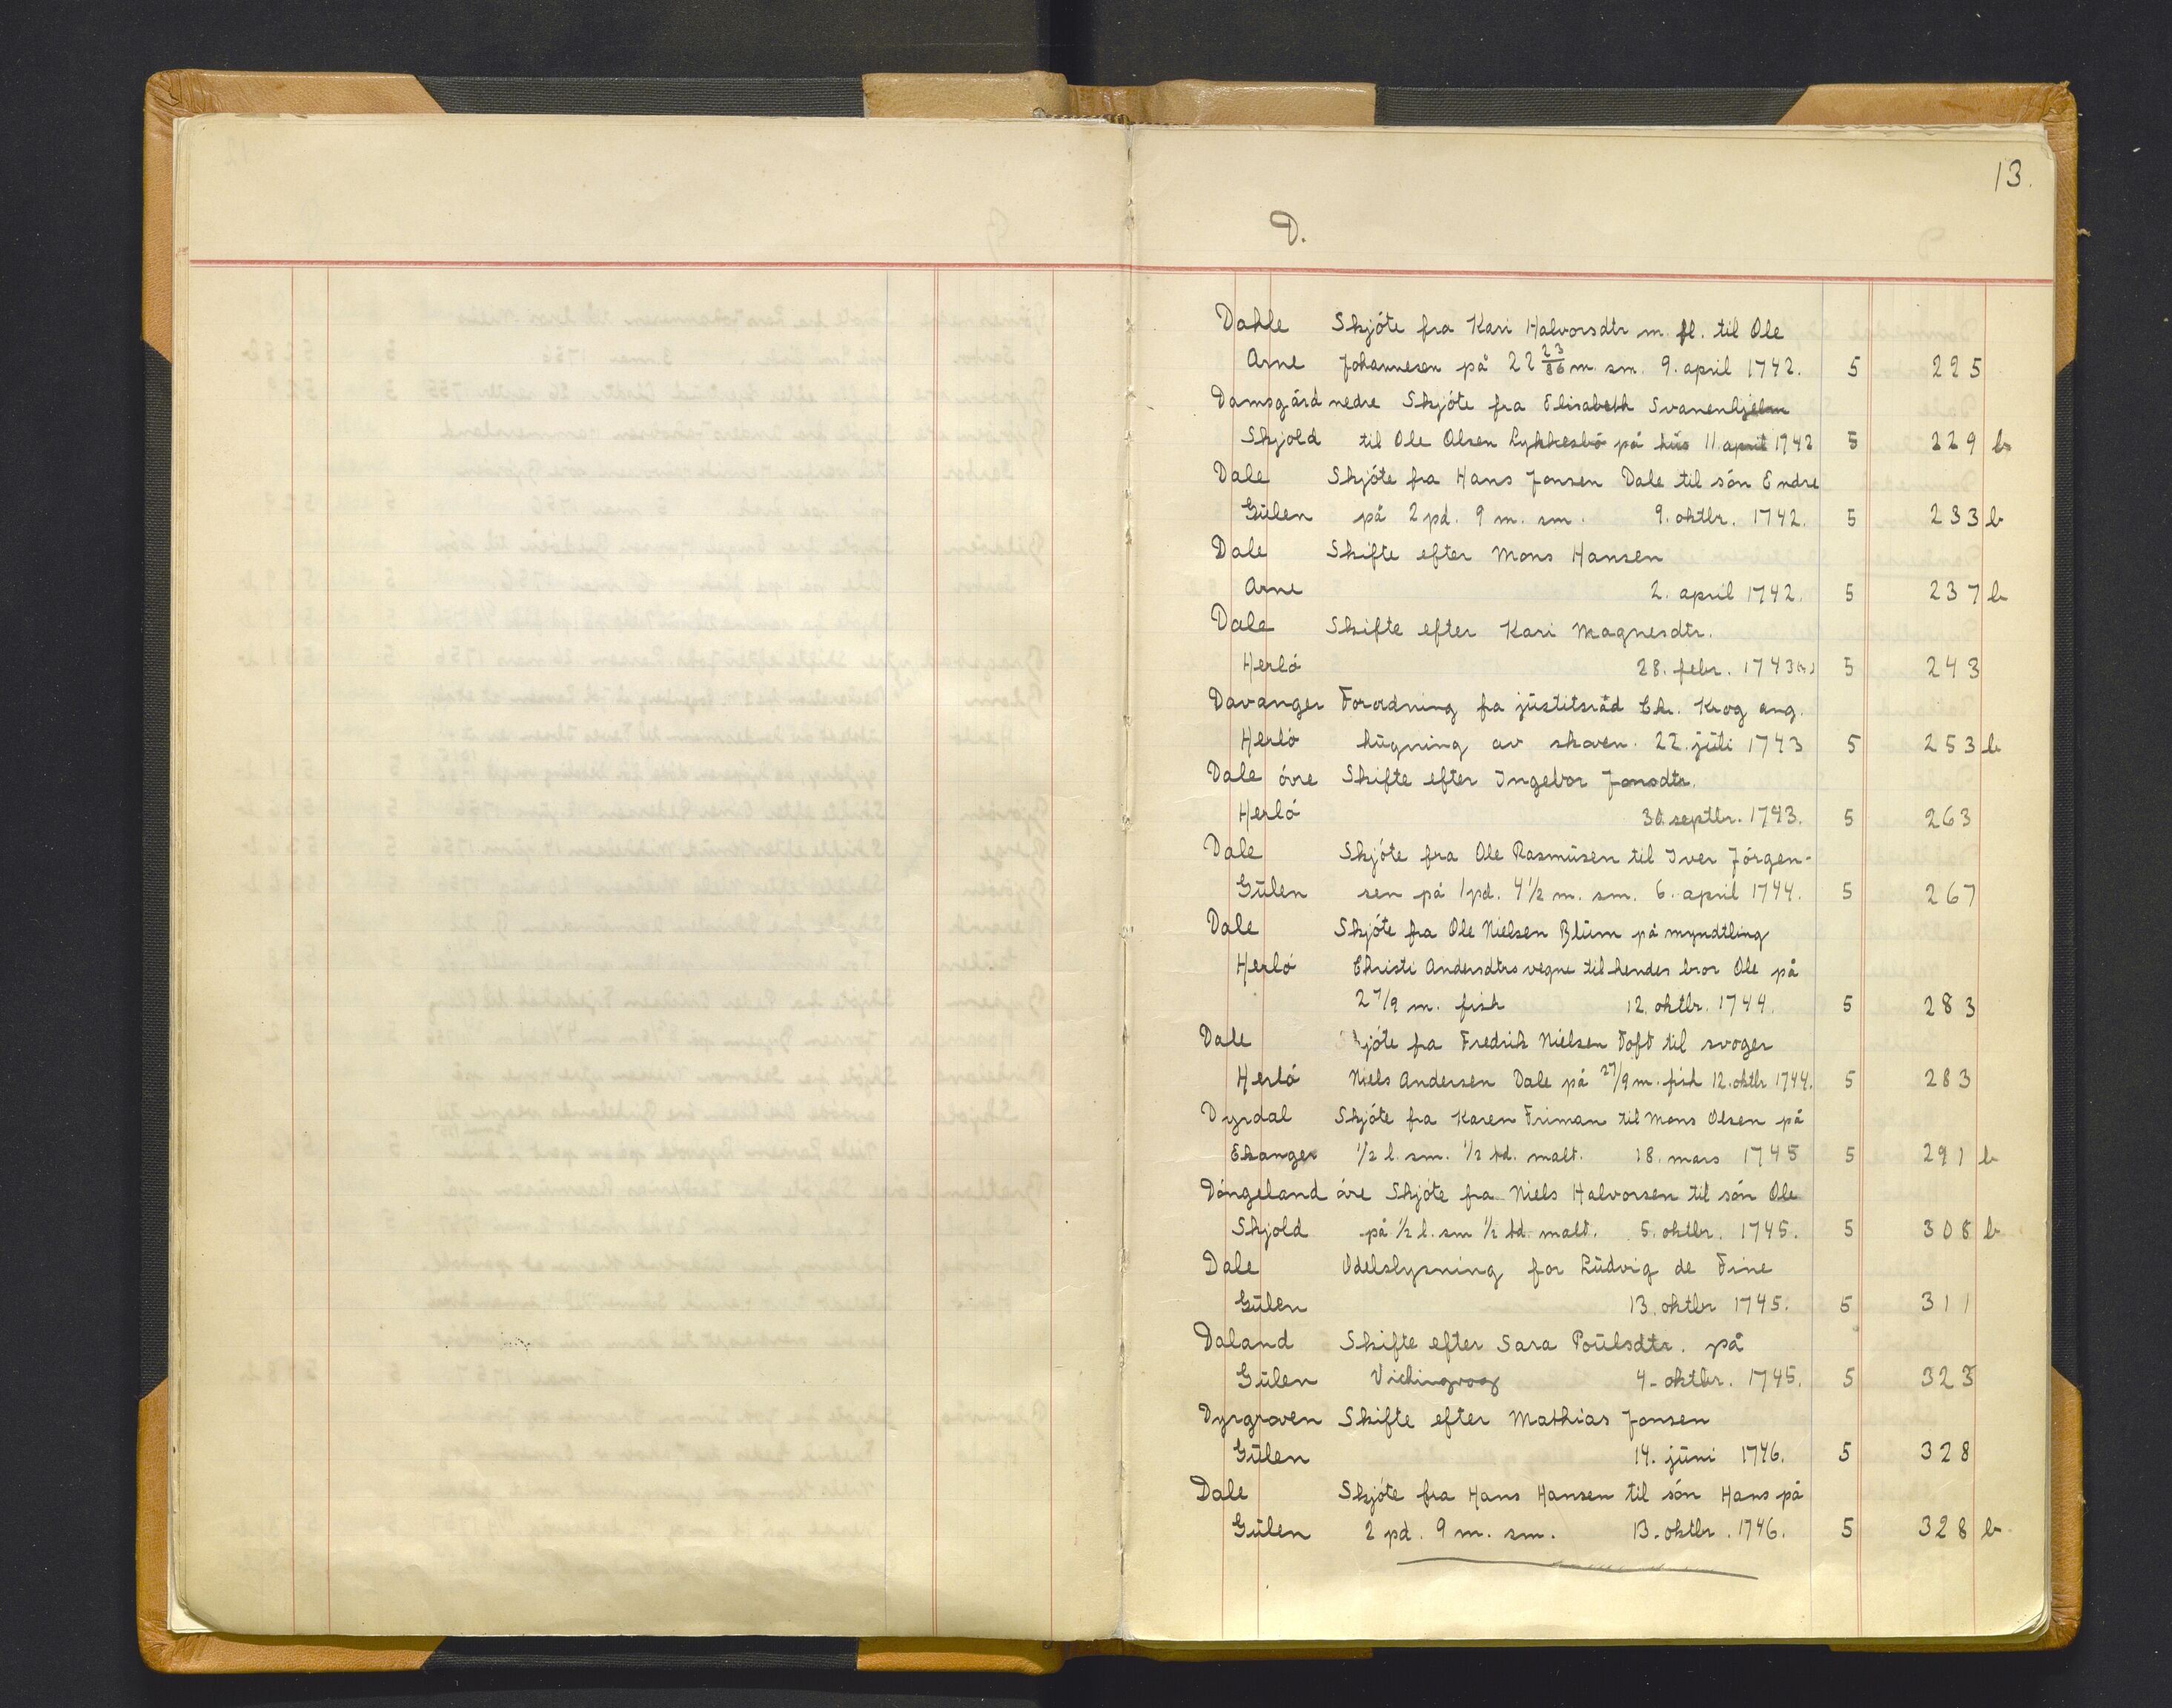 13.
D.
Dahle Skjóte fra Kari Halvorsdtr m. fl. til Ole
Arne Johannesen på 22 23/86 m. sm. 9. april 1742. 5 225
Damsgård nedre Skjóte fra Elisabeth Svanenhjelm
Skjold til Ole Olsen Lykkesbó på hüs 11 april 1742 5 229 b
Dale Skjóte fra Hans Jonsen Dale til són Endre
Gülen på 2 pd. 9 m. sm. 9. oktbr. 1742. 5 233 b
Dale Skifte efter Mons Hansen
Arne 2. april 1742. 5 237 b
Dale Skifte efter Kari Magnesdtr.
Herló 28. febr. 1743 5 243
Davanger Forordning fra jüstitsråd Chr. Krog ang.
Herló hügning av skoven. 22. jüli 1743 5 253 b
Dale óvre Skifte efter Ingebor Jonsdtr.
Herló 30. septbr. 1743. 5 263
Dale Skjóte fra Ole Rasmüsen til Iver Jórgen-
Gülen sen på 1 pd. 4 1/2 m. sm. 6. april 1744. 5 267
Dale Skjóte fra Ole Nielsen Blüm på myndtling
Herló Christi Andersdtrs vegne til hendes bror Ole på
2 7/9 m. fisk 12. oktbr. 1744. 5 283
Dale Skjóte fra Fredrik Nielsen Toft til svoger
Herló Niels Andersen Dale på 27/9 m. fisk 12. oktbr 1744. 5 283
Dyrdal Skjóte fra Karen Friman til Mons Olsen på
Ekanger 1/2 l. sm. 1/2 td. malt. 18. mars 1745 5 291 b
Dóngeland óvre Skjóte fra Niels Halvorsen til són Ole
Skjold på 1/2 l. sm 1/2 td. malt. 5. oktbr. 1745. 5 308 b
Dale Odelslysning for Lüdvig de Fine
Gülen 13. oktbr 1745. 5 311
Daland Skifte efter Sara Poülsdtr. på
Gülen Vichingvog 4. oktbr. 1745. 5 323
Dyrgraven Skifte efter Mathias Jonsen
Gülen 14. jüni 1746. 5 328
Dale Skjóte fra Hans Hansen til són Hans på
Gülen 2 pd. 9 m. sm. 13. oktbr. 1746. 5 328 b